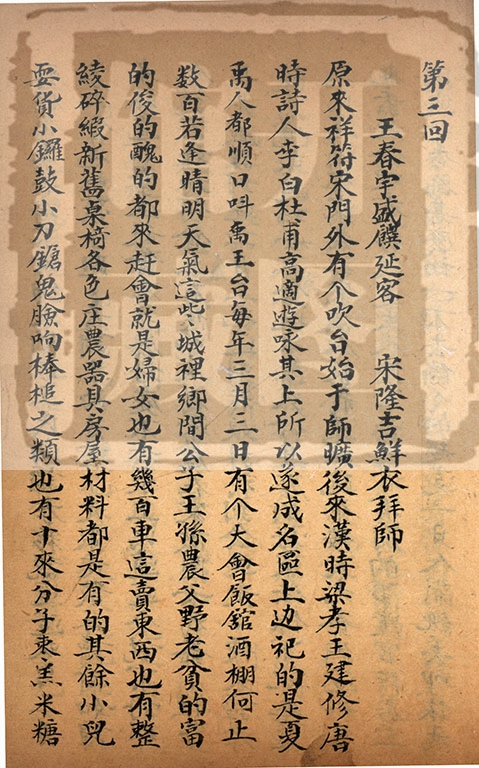 第三回
王春宇盛饌延客 宋隆吉鮮衣拜師
原來祥符宋門外有个吹台始于師曠後來漢時梁孝王建修唐
時詩人李白杜甫高適遊咏其上所以遂成名區上边祀的是夏
禹人都順口呌禹王台每年三月三日有个大會飯舘酒棚何止
数百若逢晴明天氣這些城裡鄉間公子王孫農父野老貧的富
的俊的醜的都來赶會就是婦女也有幾百車這賣東西也有整
綾碎緞新舊桌椅各色庄農器具房屋材料都是有的其餘小兒
耍貨小鑼鼓小刀鎗鬼臉响棒槌之類也有十來分子棗羔米糖